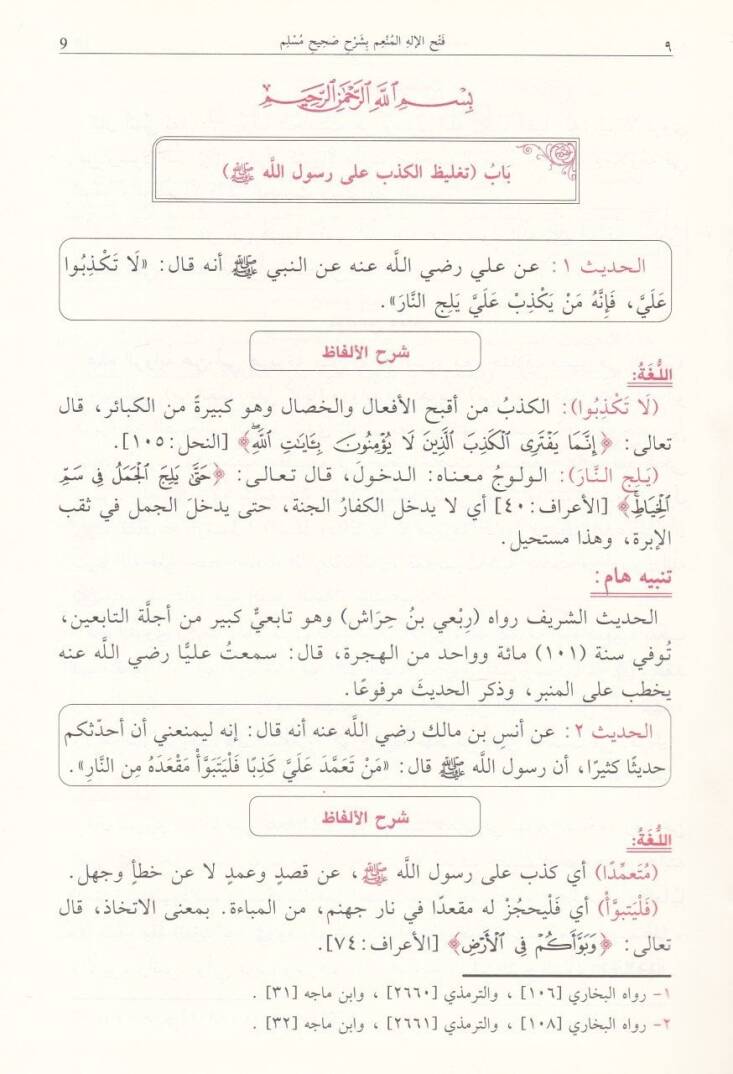 ٩ فَتْح الإلهِ المُنْعِم بِشَرْحِ صَحِيحِ مُسْلِم 9
بِسْمِ اللَّهِ الرَّحْمَنِ الرَّحِيمِ
بَابُ (تغليظ الكذب على رسول اللَّه ﷺ)
الحديث ١: عن علي رضي اللَّه عنه عن النبي ﷺ أنه قال: «لَا تَكْذِبُوا
عَلَيَّ، فَإِنَّهُ مَنْ يَكْذِبْ عَلَيَّ يَلِجِ النَّارَ».
شرح الألفاظ
اللُّغَةُ:
(لَا تَكْذِبُوا): الكذبُ من أقبح الأفعال والخصال وهو كبيرةً من الكبائر، قال
تعالى: ﴿إِنَّمَا يَفْتَرِى الْكَذِبَ الَّذِينَ لَا يُؤْمِنُونَ بِـَٔايَاتِ اللَّهِ﴾ [النحل: ١٠٥].
(يَلِج النَّارَ): الولوجُ معناه: الدخولَ، قال تعالى: ﴿حَتَّى يَلِجَ الْجَمَلُ فِى سَمِّ
الْخِيَاطِ﴾ [الأعراف: ٤٠] أي لا يدخل الكفارُ الجنة، حتى يدخلَ الجمل في ثقب
الإبرة، وهذا مستحيل.
تنبيه هام:
الحديث الشريف رواه (رِبْعي بنُ حِرَاش) وهو تابعيٌّ كبير من أجلَّة التابعين،
تُوفي سنة (١٠١) مائة وواحد من الهجرة، قال: سمعتُ عليًّا رضي اللَّه عنه
يخطب على المنبر، وذكر الحديثَ مرفوعًا.
الحديث ٢: عن أنسِ بن مالك رضي اللَّه عنه أنه قال: إنه ليمنعني أن أحدّثكم
حديثًا كثيرًا، أن رسول اللَّه ﷺ قال: «مَنْ تَعَمَّدَ عَلَيَّ كَذِبًا فَلْيَتَبَوَّأْ مَقْعَدَهُ مِن النَّارِ».
شرح الألفاظ
اللُّغَةُ:
(مُتَعمِّدًا) أي كذب على رسول اللَّه ﷺ، عن قصدٍ وعمدٍ لا عن خطأٍ وجهل.
(فَلْيَتبوَّأْ) أي فَلْيحجُزْ له مقعدًا في نار جهنم، من المباءة. بمعنى الاتخاذ، قال
تعالى: ﴿وَبَوَّأَكُمْ فِى الْأَرْضِ﴾ [الأعراف: ٧٤].
١- رواه البخاري [١٠٦] ، والترمذي [٢٦٦٠] ، وابن ماجه [٣١] .
٢- رواه البخاري [١٠٨] ، والترمذي [٢٦٦١] ، وابن ماجه [٣٢] .